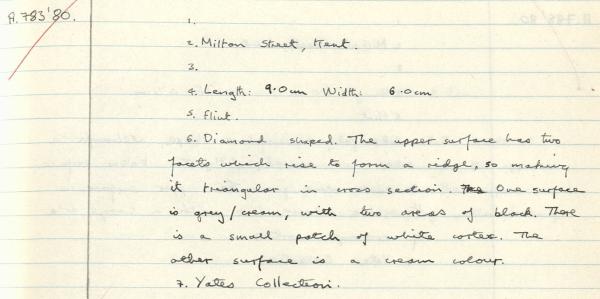 A.783'80.
1.
2. Milton Street, Kent.
3.
4. Length: 9.0cm Width: 6.0cm
5. Flint.
6. Diamond shaped. The upper surface has two
facets which rise to form a ridge, so making
it triangular in cross section. The One surface
is grey/cream, with two areas of black. There
is a small patch of white cortex. The
other surface is a cream colour.
7. Yates Collection.